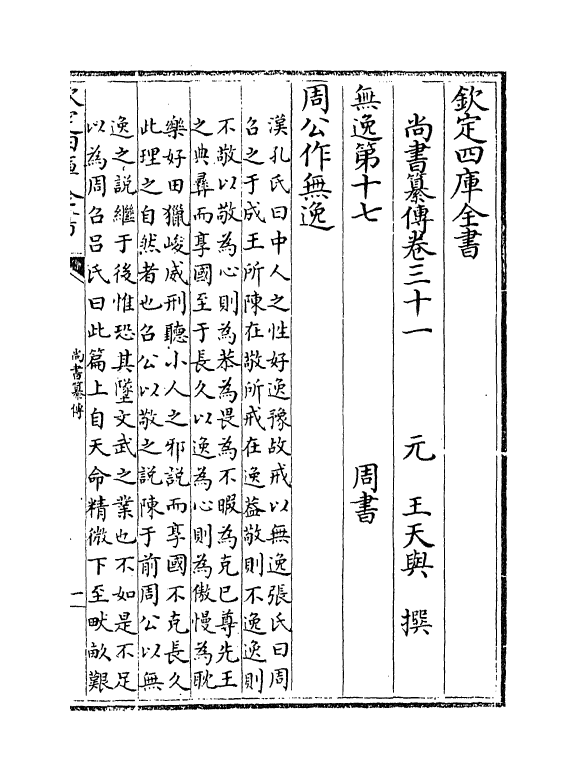 欽定四庫全書
尚書纂傳卷三十一　元　王天與　撰
無逸第十七　周書
周公作無逸
漢孔氏曰中人之性好逸豫故戒以無逸張氏曰周
召之于成王所陳在敬所戒在逸葢敬則不逸逸則
不敬以敬為心則為恭為畏為不暇為克已尊先王
之典彞而享國至于長久以逸為心則為傲慢為耽
樂好田獵峻威刑聽小人之邪説而享國不克長久
此理之自然者也召公以敬之説陳于前周公以無
逸之説繼于後惟恐其墜文武之業也不如是不足
以為周召吕氏曰此篇上自天命精微下至畎畝艱
尚書纂傳
一